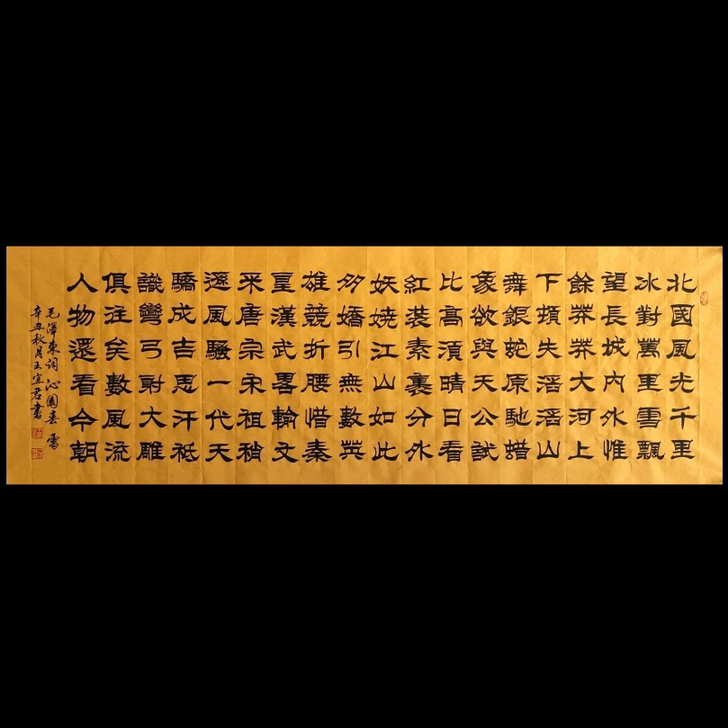 北國風光千里
冰對萬里雪飄
望長城內外惟
餘莽莽大河上
下頓失滔滔山
舞銀蛇原馳蜡
象欲與天公試
比高須晴日看
紅裝素裹分外
妖嬈江山如此
多嬌引無數英
雄競折腰惜秦
皇漢武畧輸文
采唐宗宋祖稍
遜風騷一代天
驕成吉思汗祗
識彎弓射大雕
俱往矣數風流
人物還看今朝
毛澤東詞沁園春 雪
辛丑秋月王宜君書